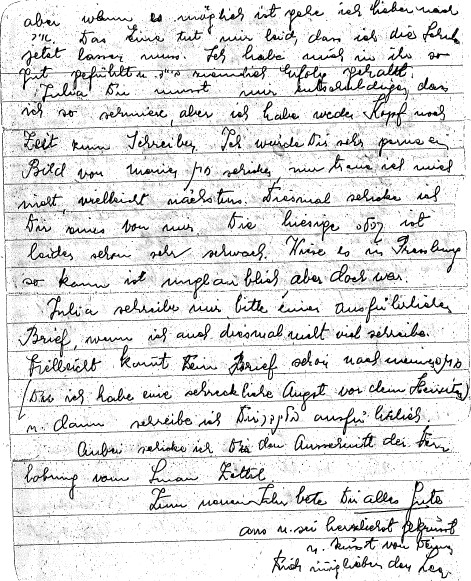 aber wenn es möglich ist gehe ich lieber nach
Das Eine tut mir leid, dass ich die Schule
jetzt lassen muss. Ich habe mich in ihr so
gut gefühlt u. ziemlich Erfolg gehabt.
Julia Du musst mir entschuldigen dass
ich so schmiere aber ich habe weder Kopf noch
Zeit zum Schreiben. Ich würde Dir sehr gerne ein
Bild von meinem schicken nur traue ich mich
nicht, vielleicht nächstens. Diesmal schicke ich
Dir eines von mir. Die hiesige ist
leider schon sehr schwach. Wie es in Pressburg
so kam ist unglaublich aber doch wahr.
Julia schreibe mir bitte einen ausführlichen
Brief, wenn ich auch diesmal nicht viel schreibe.
Vielleicht kommt Dein Brief schon nach meiner
(Du ich habe eine schreckliche Angst vor dem
u. dann schreibe ich Dir ausführlich.
Anbei schicke ich Dir den Ausschnitt der Ver
lobung vom Zettel
Zum neuen Jahr alles Gute
aus u. sei herzlichst gegrüsst
u. geküsst von Deiner
Dich